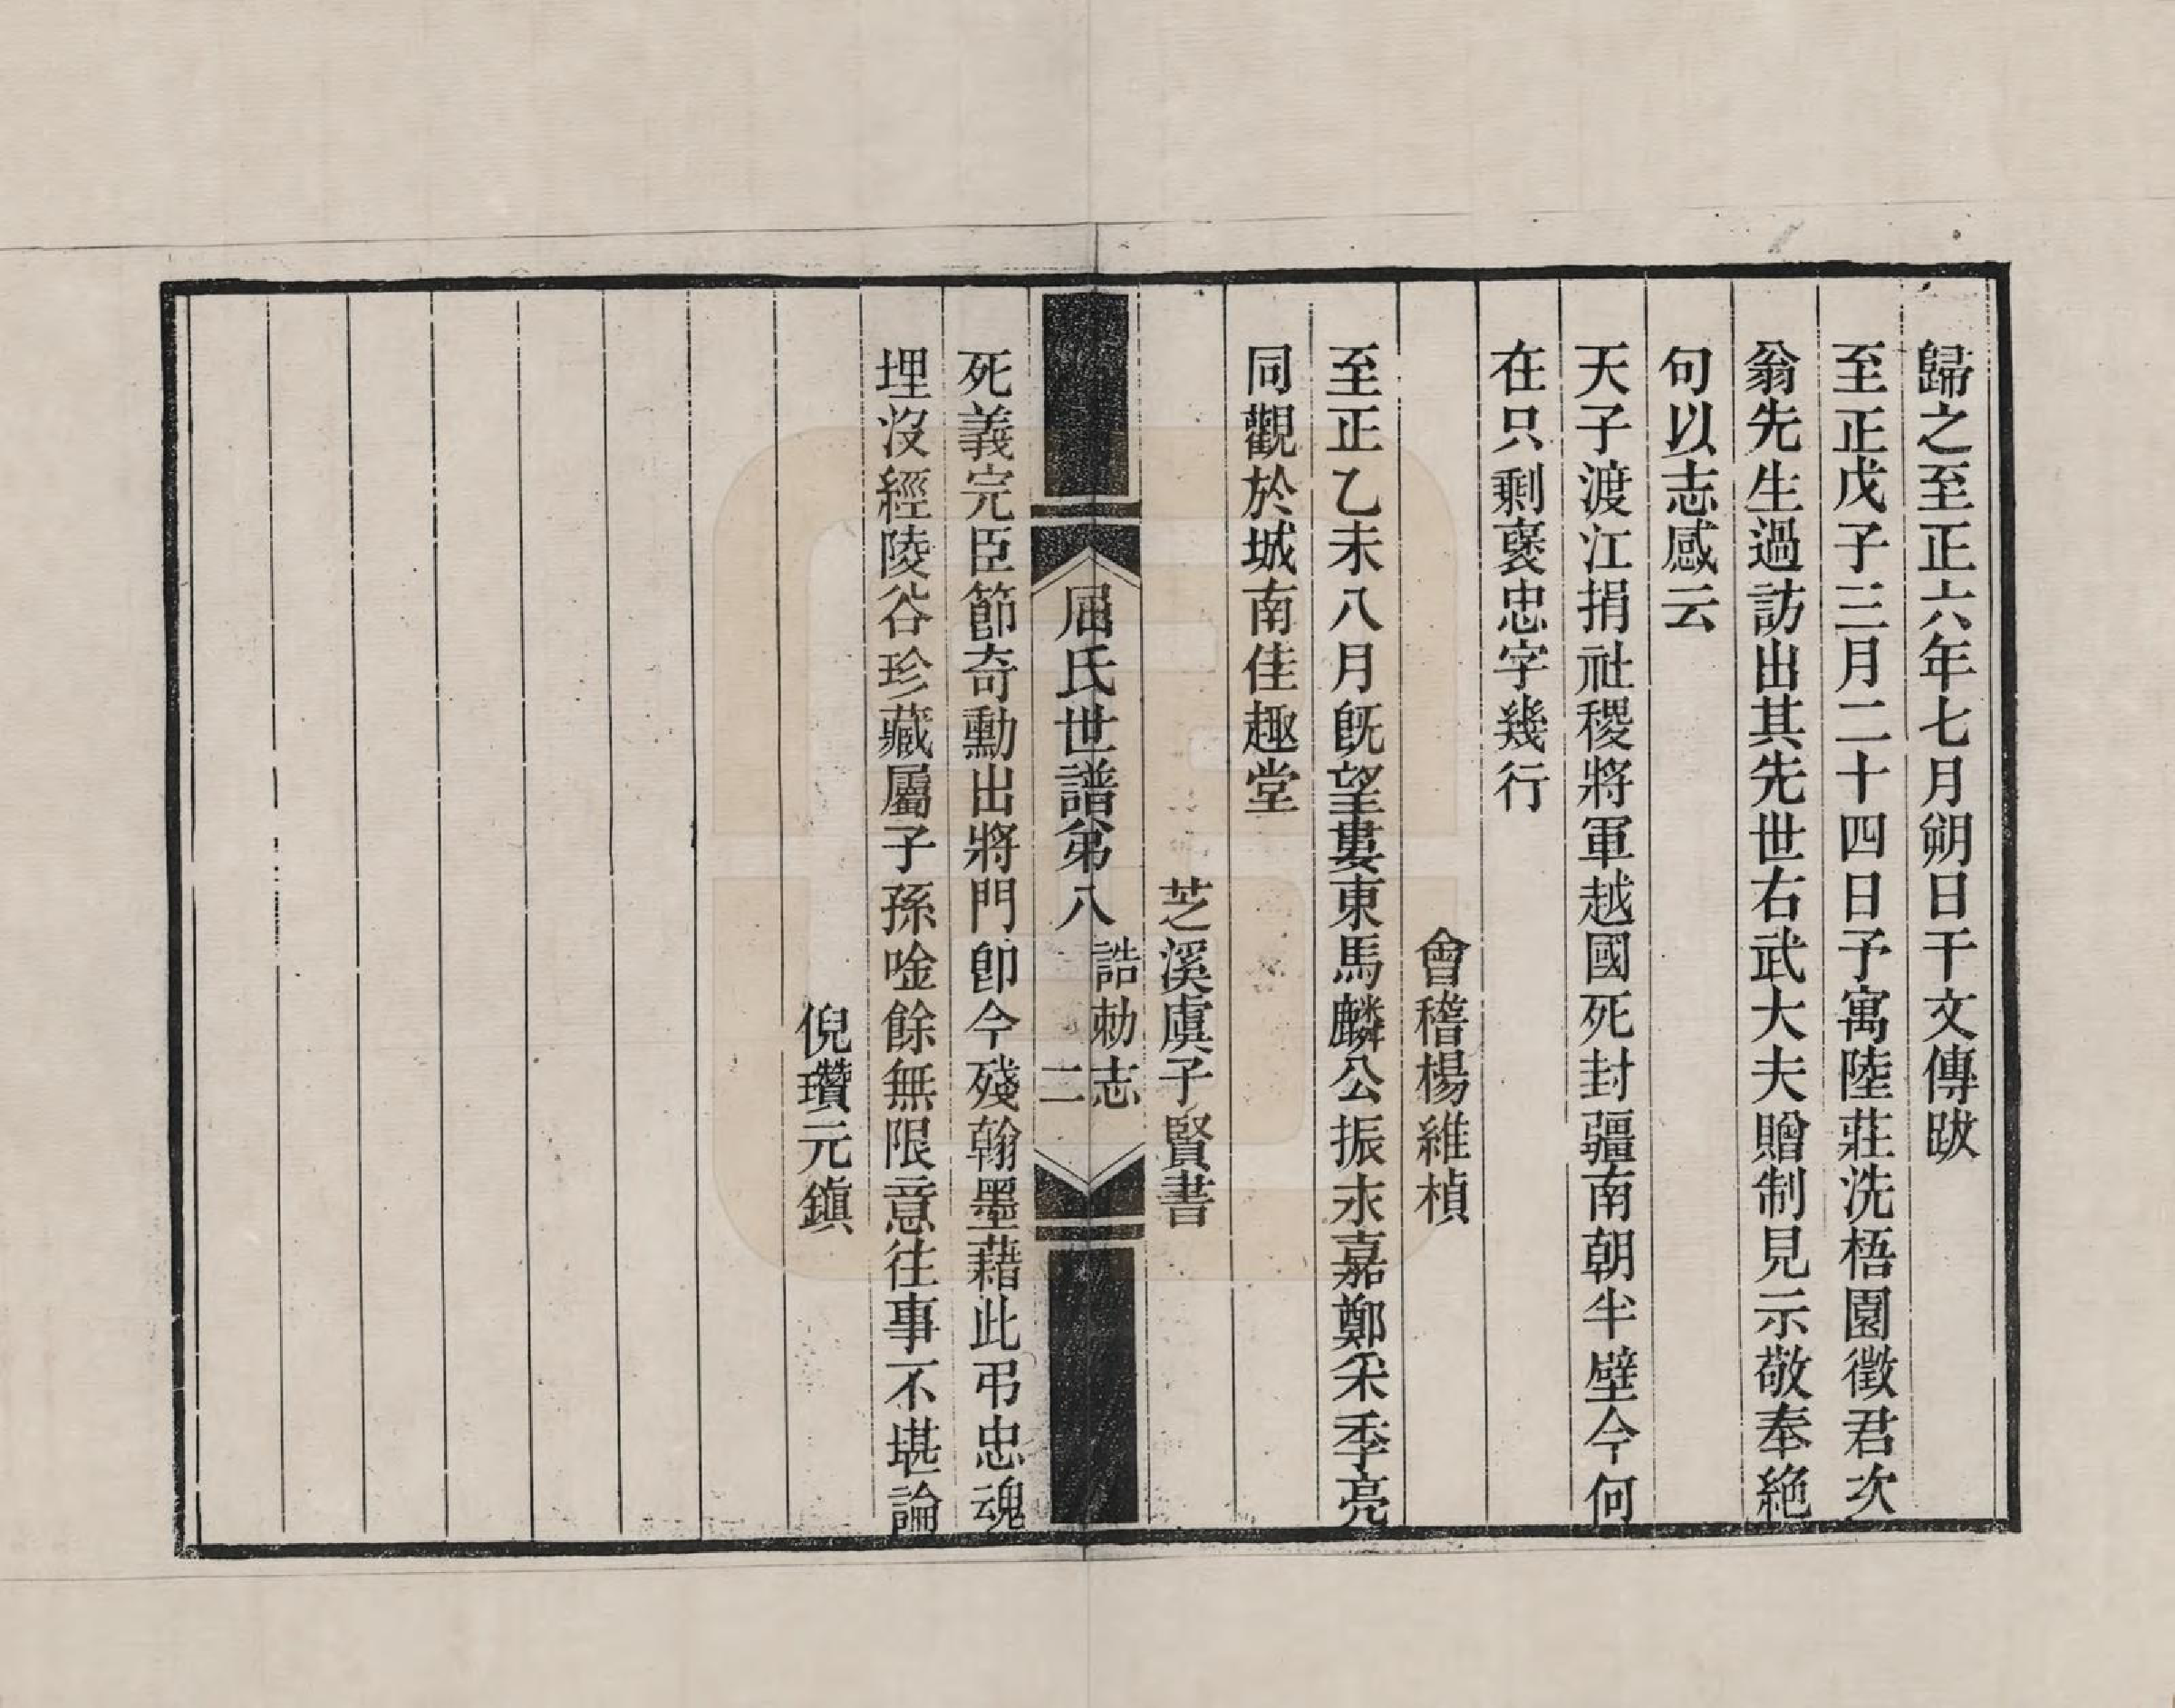 歸之至正六年七月朔日干文傳跋
至正戊子三月二十四日予寓陸莊洗梧園徵君次
翁先生過訪出其先世右武大夫贈制見示敬奉絶
句以志感云
天子渡江捐社稷將軍越國死封疆南朝半壁今何
在只剩褒忠字幾行
會稽楊維楨
至正乙未八月旣望婁東馬麟公振永嘉鄭采季亮
同觀於城南佳趣堂
芝溪虞子賢書
屈氏世譜弟八
誥勅志
二
死義完臣節奇勳出將門卽今殘翰墨藉此弔忠魂
埋没經陵谷珍藏屬子孫唫餘無限意往事不堪論
倪瓚元鎭